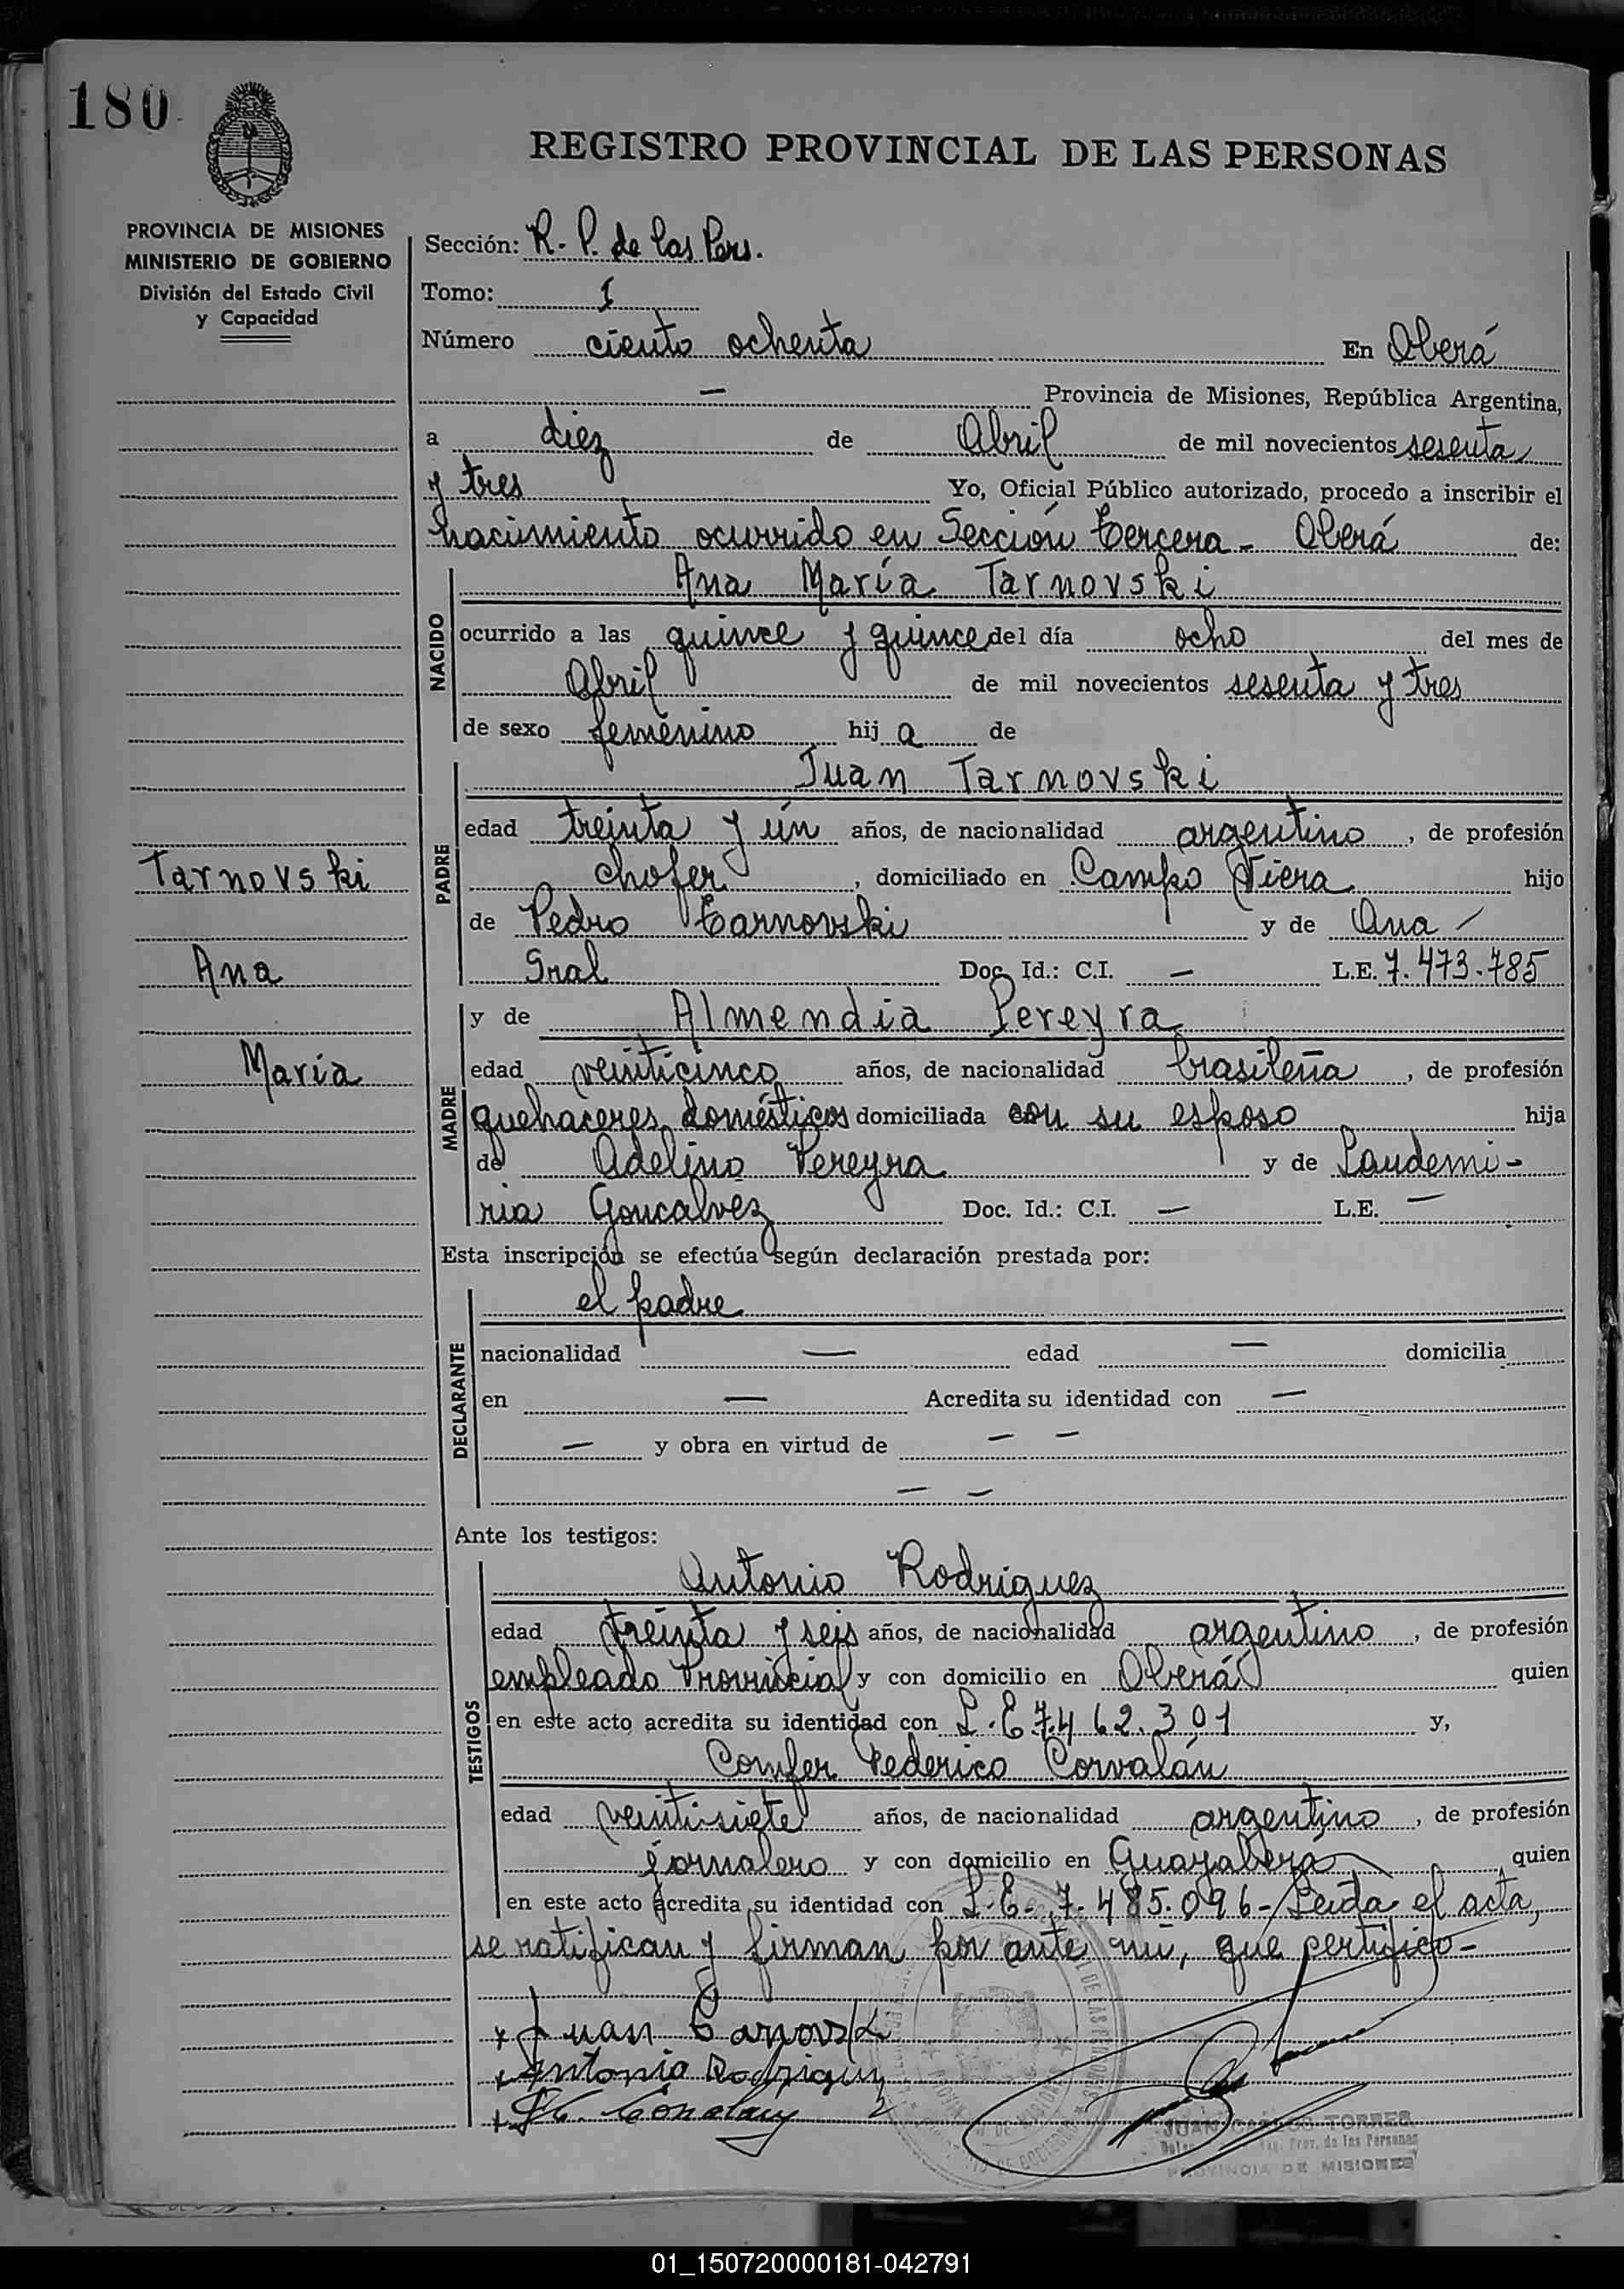 180
REGISTRO PROVINCIAL DE LAS PERSONAS
PROVINCIA DE MISIONES
MINISTERIO DE GOBIERNO
División del Estado Civil
y Capacidad
Sección: R. P. de las Pers.
Tomo: I
Número ciento ochenta En Oberá
— Provincia de Misiones, República Argentina,
a diez de Abril de mil novecientos sesenta
y tres Yo, Oficial Público autorizado, procedo a inscribir el
nacimiento ocurrido en Sección tercera - Oberá de:
NACIDO
Ana María Tarnovski
ocurrido a las quince y quince del día ocho del mes de
Abril de mil novecientos sesenta y tres
de sexo femenino hij a de
PADRE
Juan Tarnovski
edad treinta y ún años, de nacionalidad argentino, de profesión
chofer, domiciliado en Campo Viera hijo
de Pedro Tarnovski y de Ana
Gral Doc. Id.: C.I. — L.E. 7.473.785
Tarnovski
Ana
María
MADRE
y de Almendia Pereyra
edad veinticinco años, de nacionalidad brasileña, de profesión
quehaceres domésticos domiciliada con su esposo hija
de Adelino Pereyra y de Laudemi-
ria Goncalvez Doc. Id.: C.I. — L.E. —
Esta inscripción se efectúa según declaración prestada por:
DECLARANTE
el padre
nacionalidad — edad — domicilia
en — Acredita su identidad con —
— y obra en virtud de — —
— —
Ante los testigos:
TESTIGOS
Antonio Rodriguez
edad treinta y seis años, de nacionalidad argentino, de profesión
empleado Provincial y con domicilio en Oberá quien
en este acto acredita su identidad con L.E 7.462.301 y,
Comfer Federico Corvalán
edad veintisiete años, de nacionalidad argentino, de profesión
jornalero y con domicilio en Guayabera quien
en este acto acredita su identidad con L.E. 7.485.096- Leída el acta,
se ratifican y firman por ante mi, que certifico-
x Juan Tarnovski
x Antonio Rodriguez
JUAN CARLOS TORRES
Reg. Prov. de las Personas
PROVINCIA DE MISIONES
01_150720000181-042791